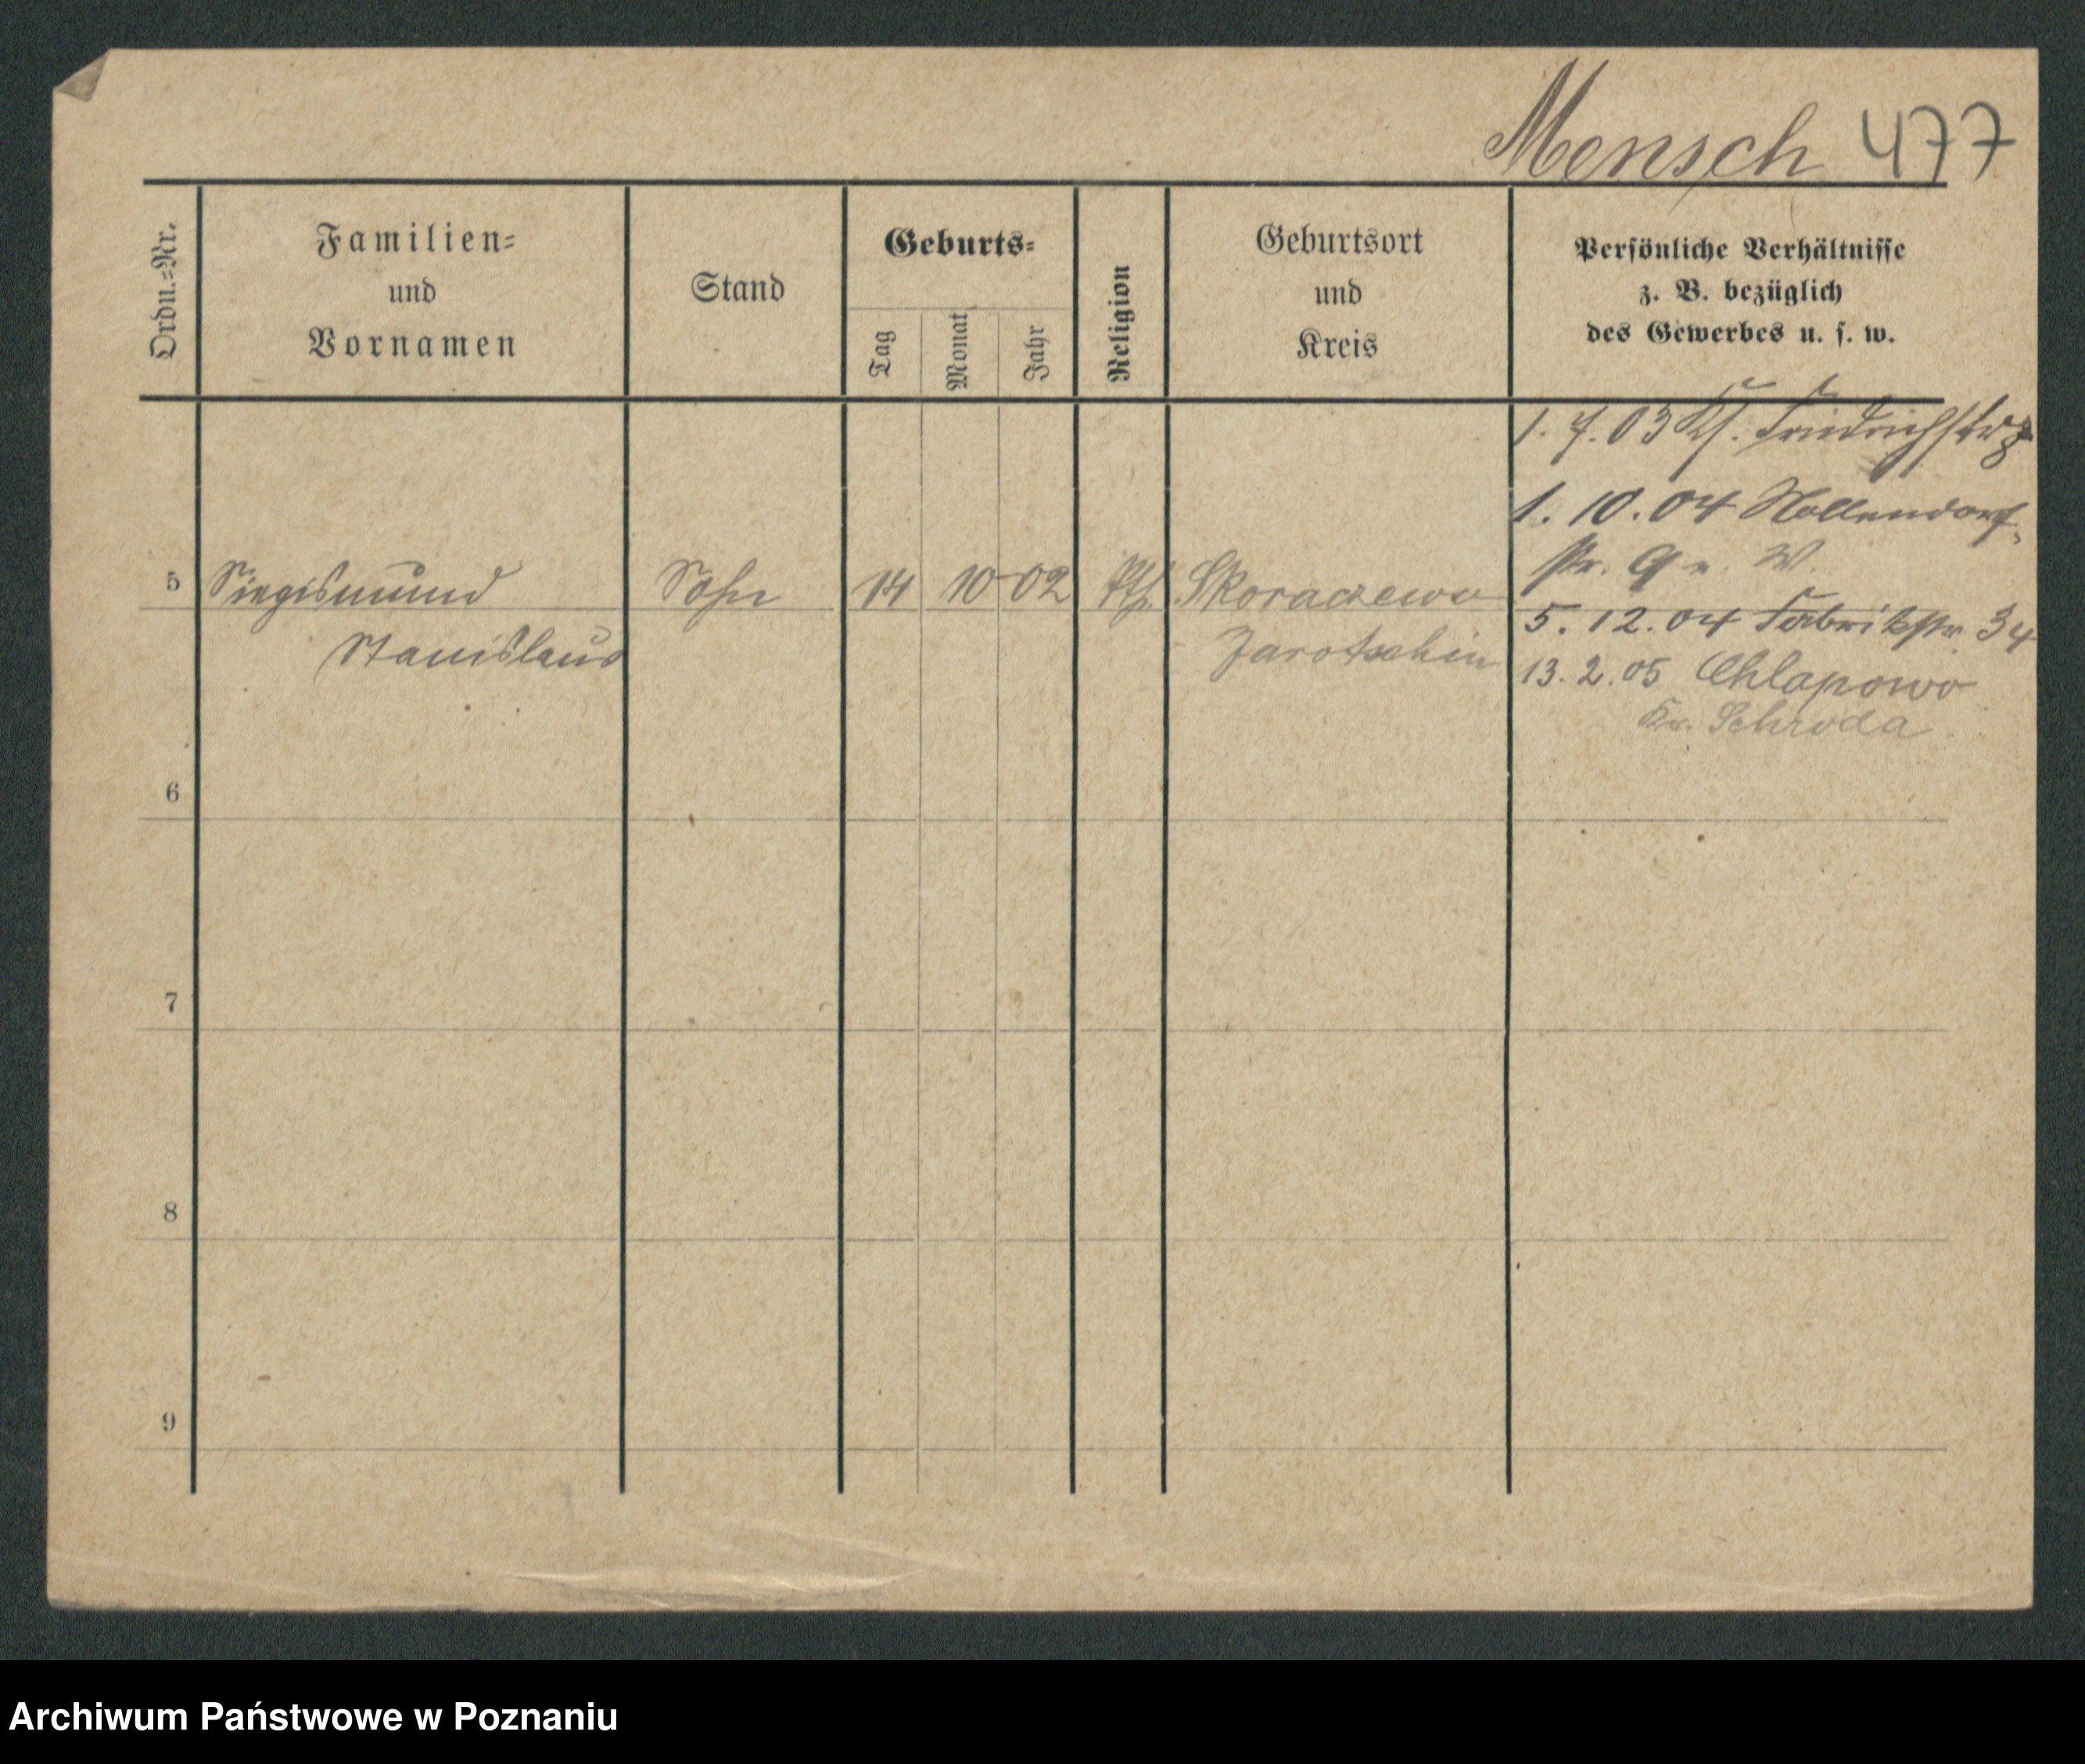 Mensch 477
Ordn.=Nr.
Familien=
und
Vornamen
Stand
Geburts=
Tag
Monat
Jahr
Religion
Geburtsort
und
Kreis
Persönliche Verhältnisse
z. B. bezüglich
des Gewerbes u. s. w.
1. 7. 03 Friedrichstr
1. 10. 04 Nollendorf-
str. 9 W.
5 Siegismund Sohn 14 10 02 Kth. Skoraczewo
Stanislaus Jarotschin
5. 12. 04 Fabrikstr. 34
13. 2. 05 Chlapowo
Kr. Schroda
6
7
8
9
Archiwum Państwowe w Poznaniu